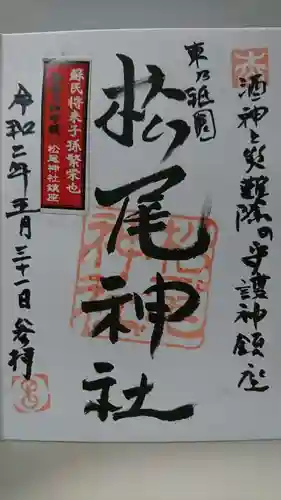 酒神と災難除の守護神鎮座
東乃祇園
松尾神社
蘇民将来子孫繁栄也
松尾神社鎮座
令和二年五月三十一日参拝